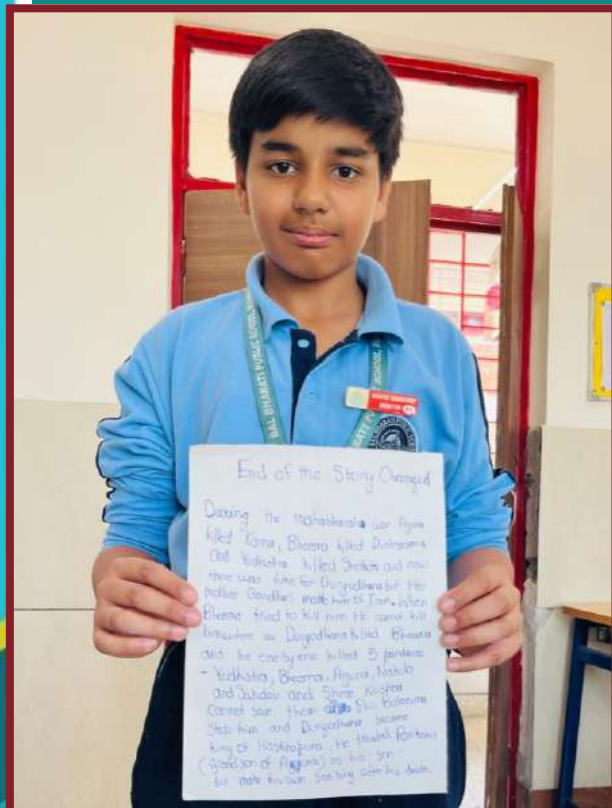 BAL BHARATI PUBLIC SCHOOL,
End of the Story Changed
During the mahabharata war Arjuna
killed Karna, Bheema killed Dushasana
and Yudhistra killed Shakuni and now
there was time for Duryodhana but his
mother Gandhari made him of Iron. When
Bheema tried to kill him He cannot kill
Duryodhana killed Bheema
and he one by one killed 5 pandavas
- Yudhistra, Bheema, Arjuna, Nakula
and Sahdev and Shree Krishna
cannot save them Balarama
stops him and Duryodhana became
king of Hastinapura. He treated Parikshit
(grandson of Arjuna) as his son
but make his own son king after his death.